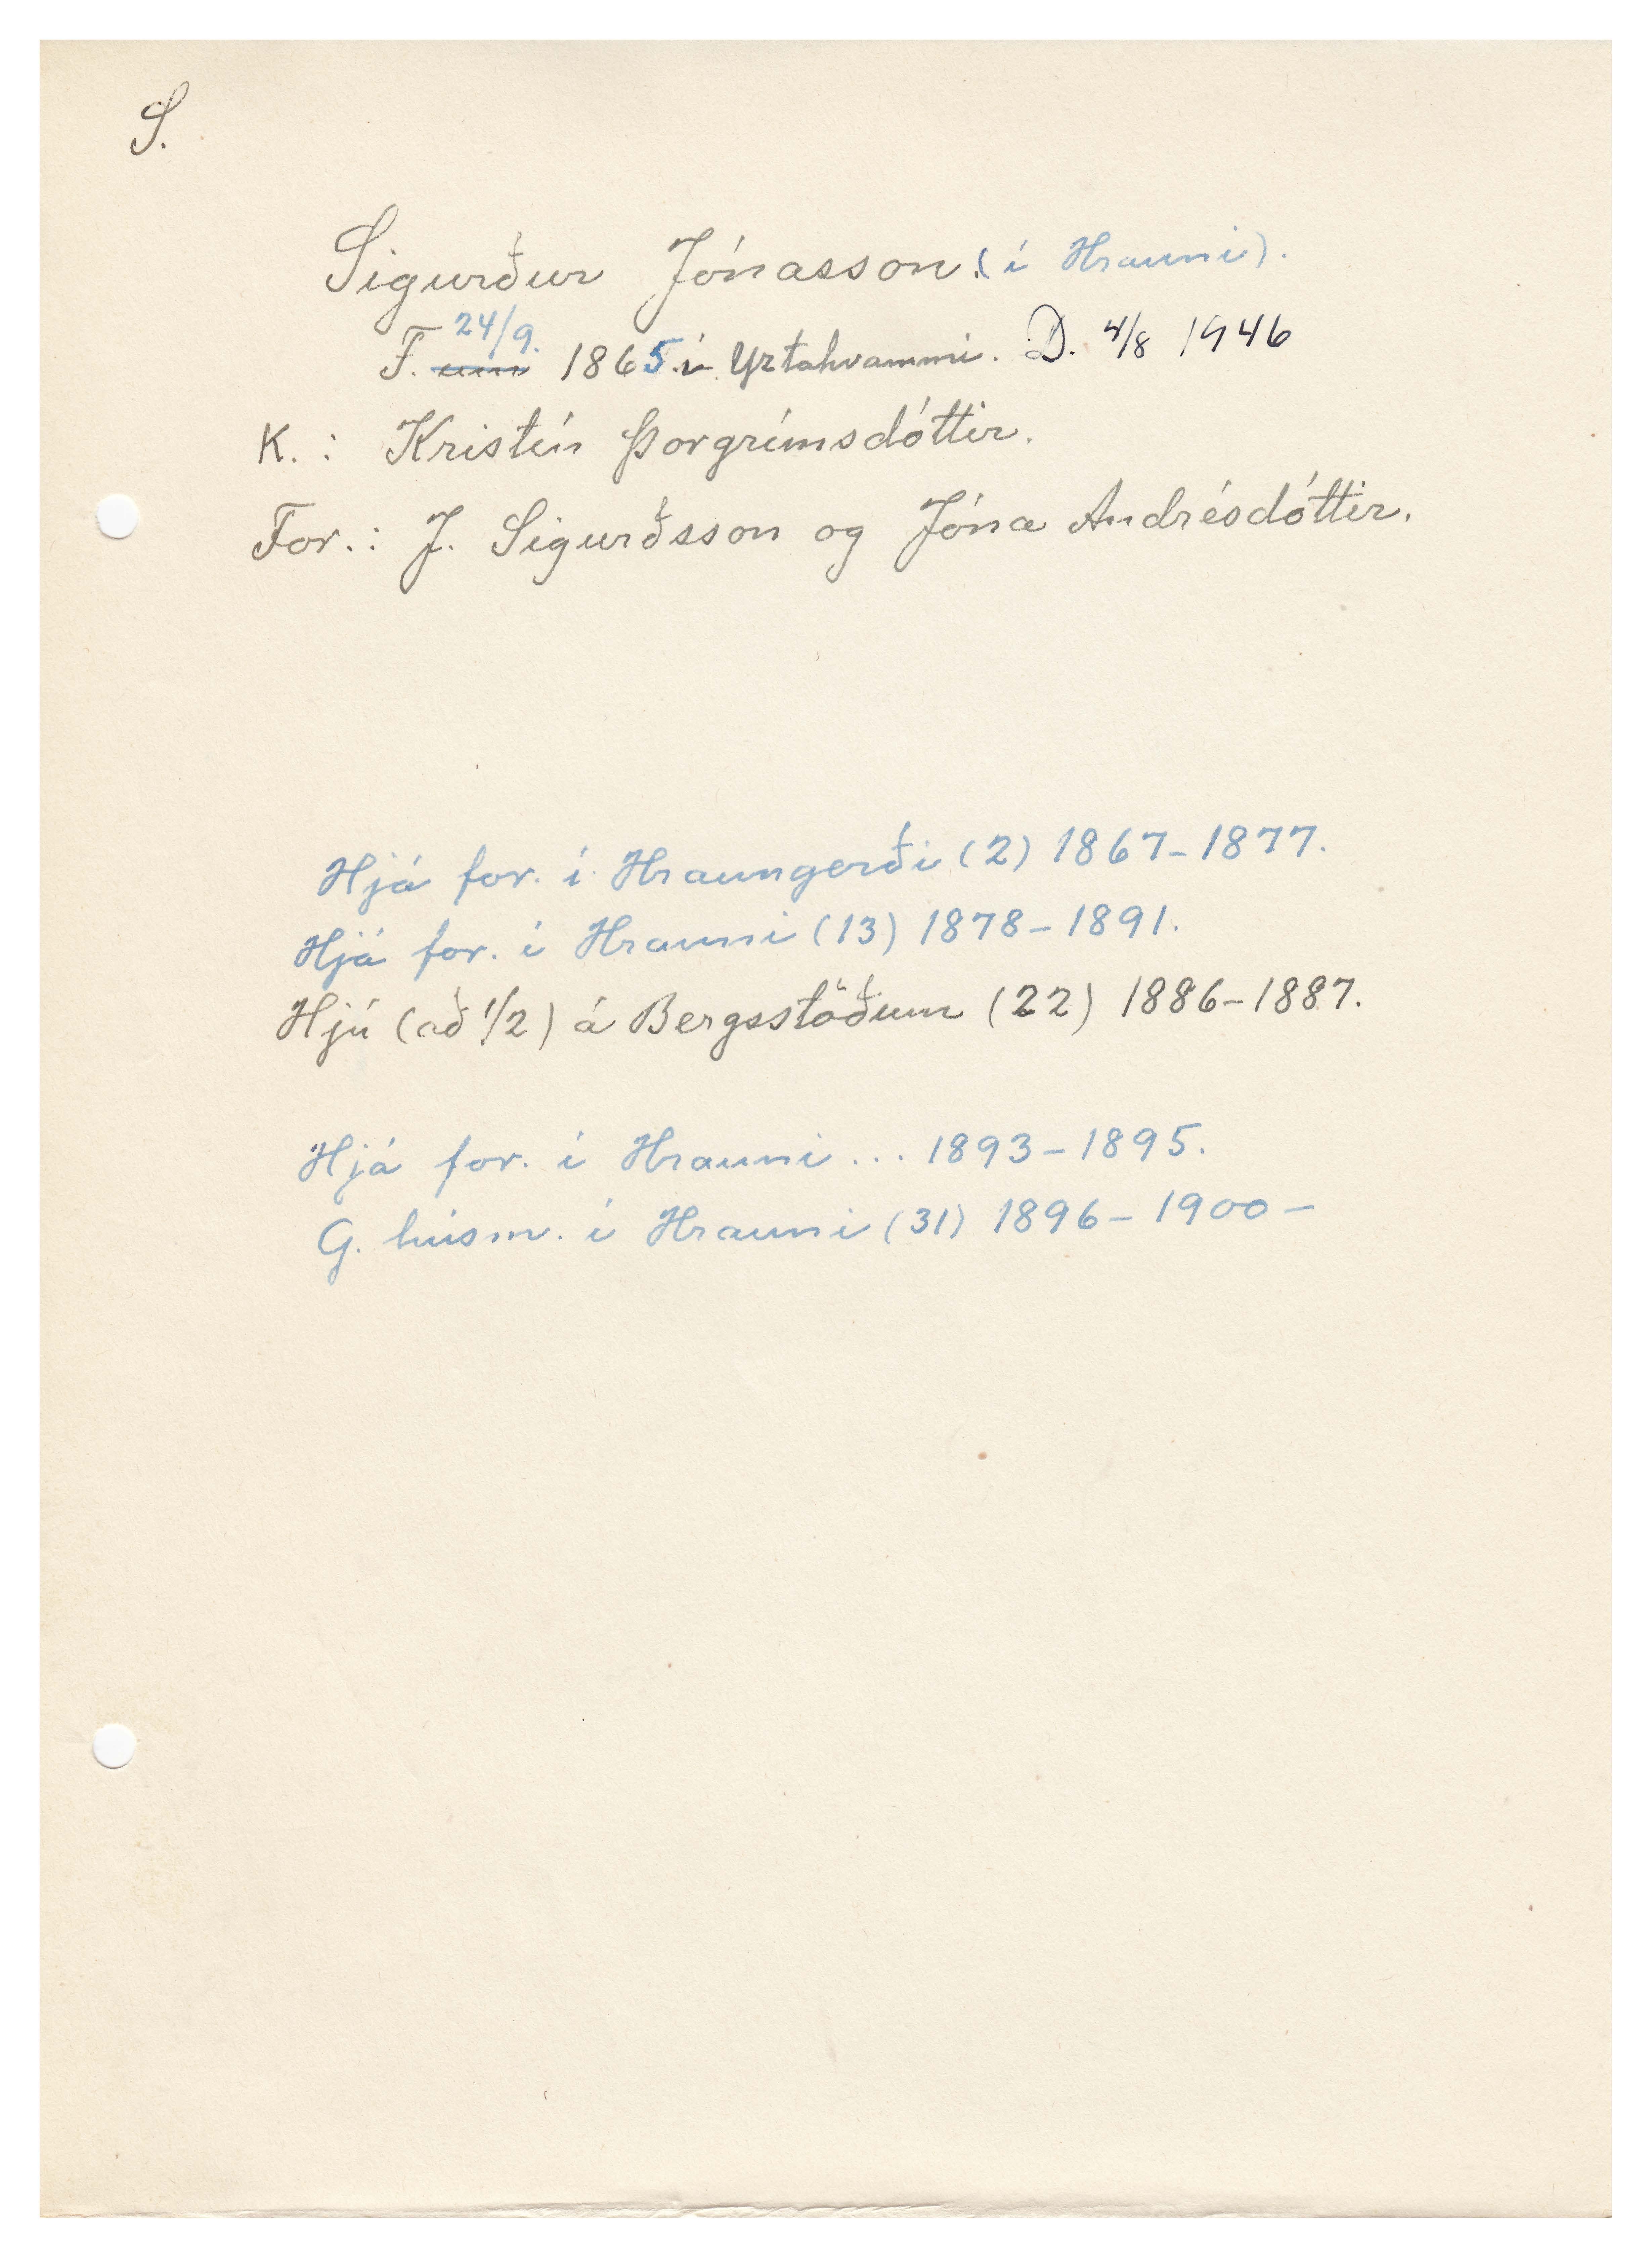 S.
Sigurður Jónasson. (í Hrauni).
F. 24/9. um 1865 í Yztahvammi. D. 4/8 1946
K.: Kristín Þorgrímsdóttir.
For.: J. Sigurðsson og Jóna Andrésdóttir.
Hjá for. í Hraungerði (2) 1867-1877.
Hjá for. í Hrauni (13) 1878-1891.
Hjú (að 1/2) á Bergsstöðum (22) 1886-1887.
Hjá for. í Hrauni ... 1893-1895.
G. húsm. í Hrauni (31) 1896-1900-